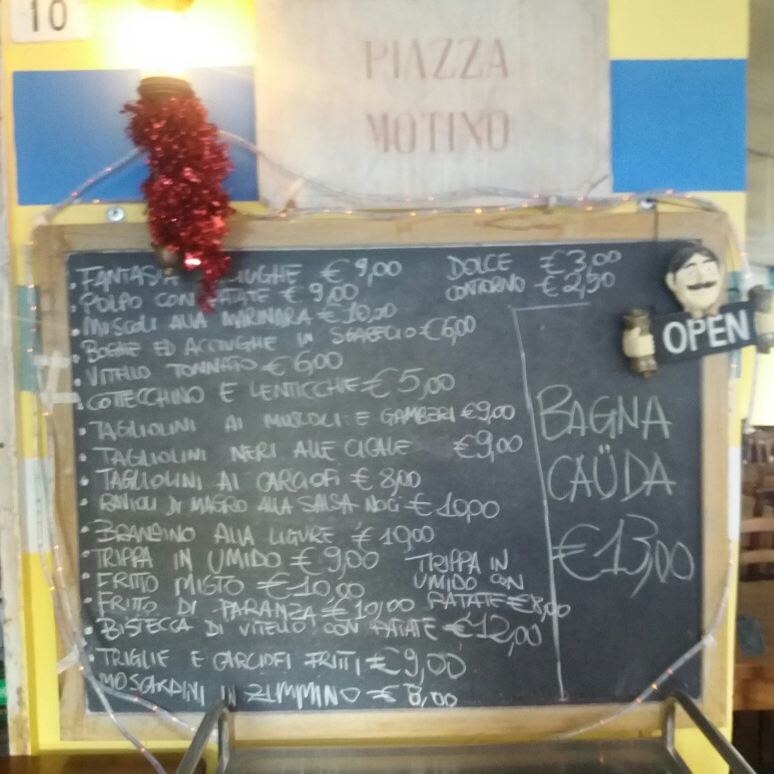 10
PIAZZA
MOTINO
FANTASIA ACCIUGHE € 9,00
POLPO CON PATATE € 9,00
MUSCOLI ALLA MARINARA € 10,00
ED ACCIUGHE IN € 6,00
VITELLO TONNATO € 6,00
COTTECCHINO E LENTICCHIE € 5,00
TAGLIOLINI AI MUSCOLI E GAMBERI € 9,00
TAGLIOLINI NERI ALLE CICALE € 9,00
TAGLIOLINI AI CARCIOFI € 8,00
RAVIOLI DI MAGRO ALLA SALSA NOCI € 10,00
BRANSINO ALLA LIGURE € 10,00
TRIPPA IN UMIDO € 9,00
FRITTO MISTO € 10,00
FRITTO DI PARANZA € 10,00
BISTECCA DI VITELLO CON PATATE € 12,00
TRIGLIE E CARCIOFI FRITTI € 9,00
MOSCARDINI IN ZIMMINO € 8,00
DOLCE € 3,00
CONTORNO € 2,50
TRIPPA IN
UMIDO CON
PATATE € 8,00
BAGNA
CAÜDA
€ 13,00
OPEN